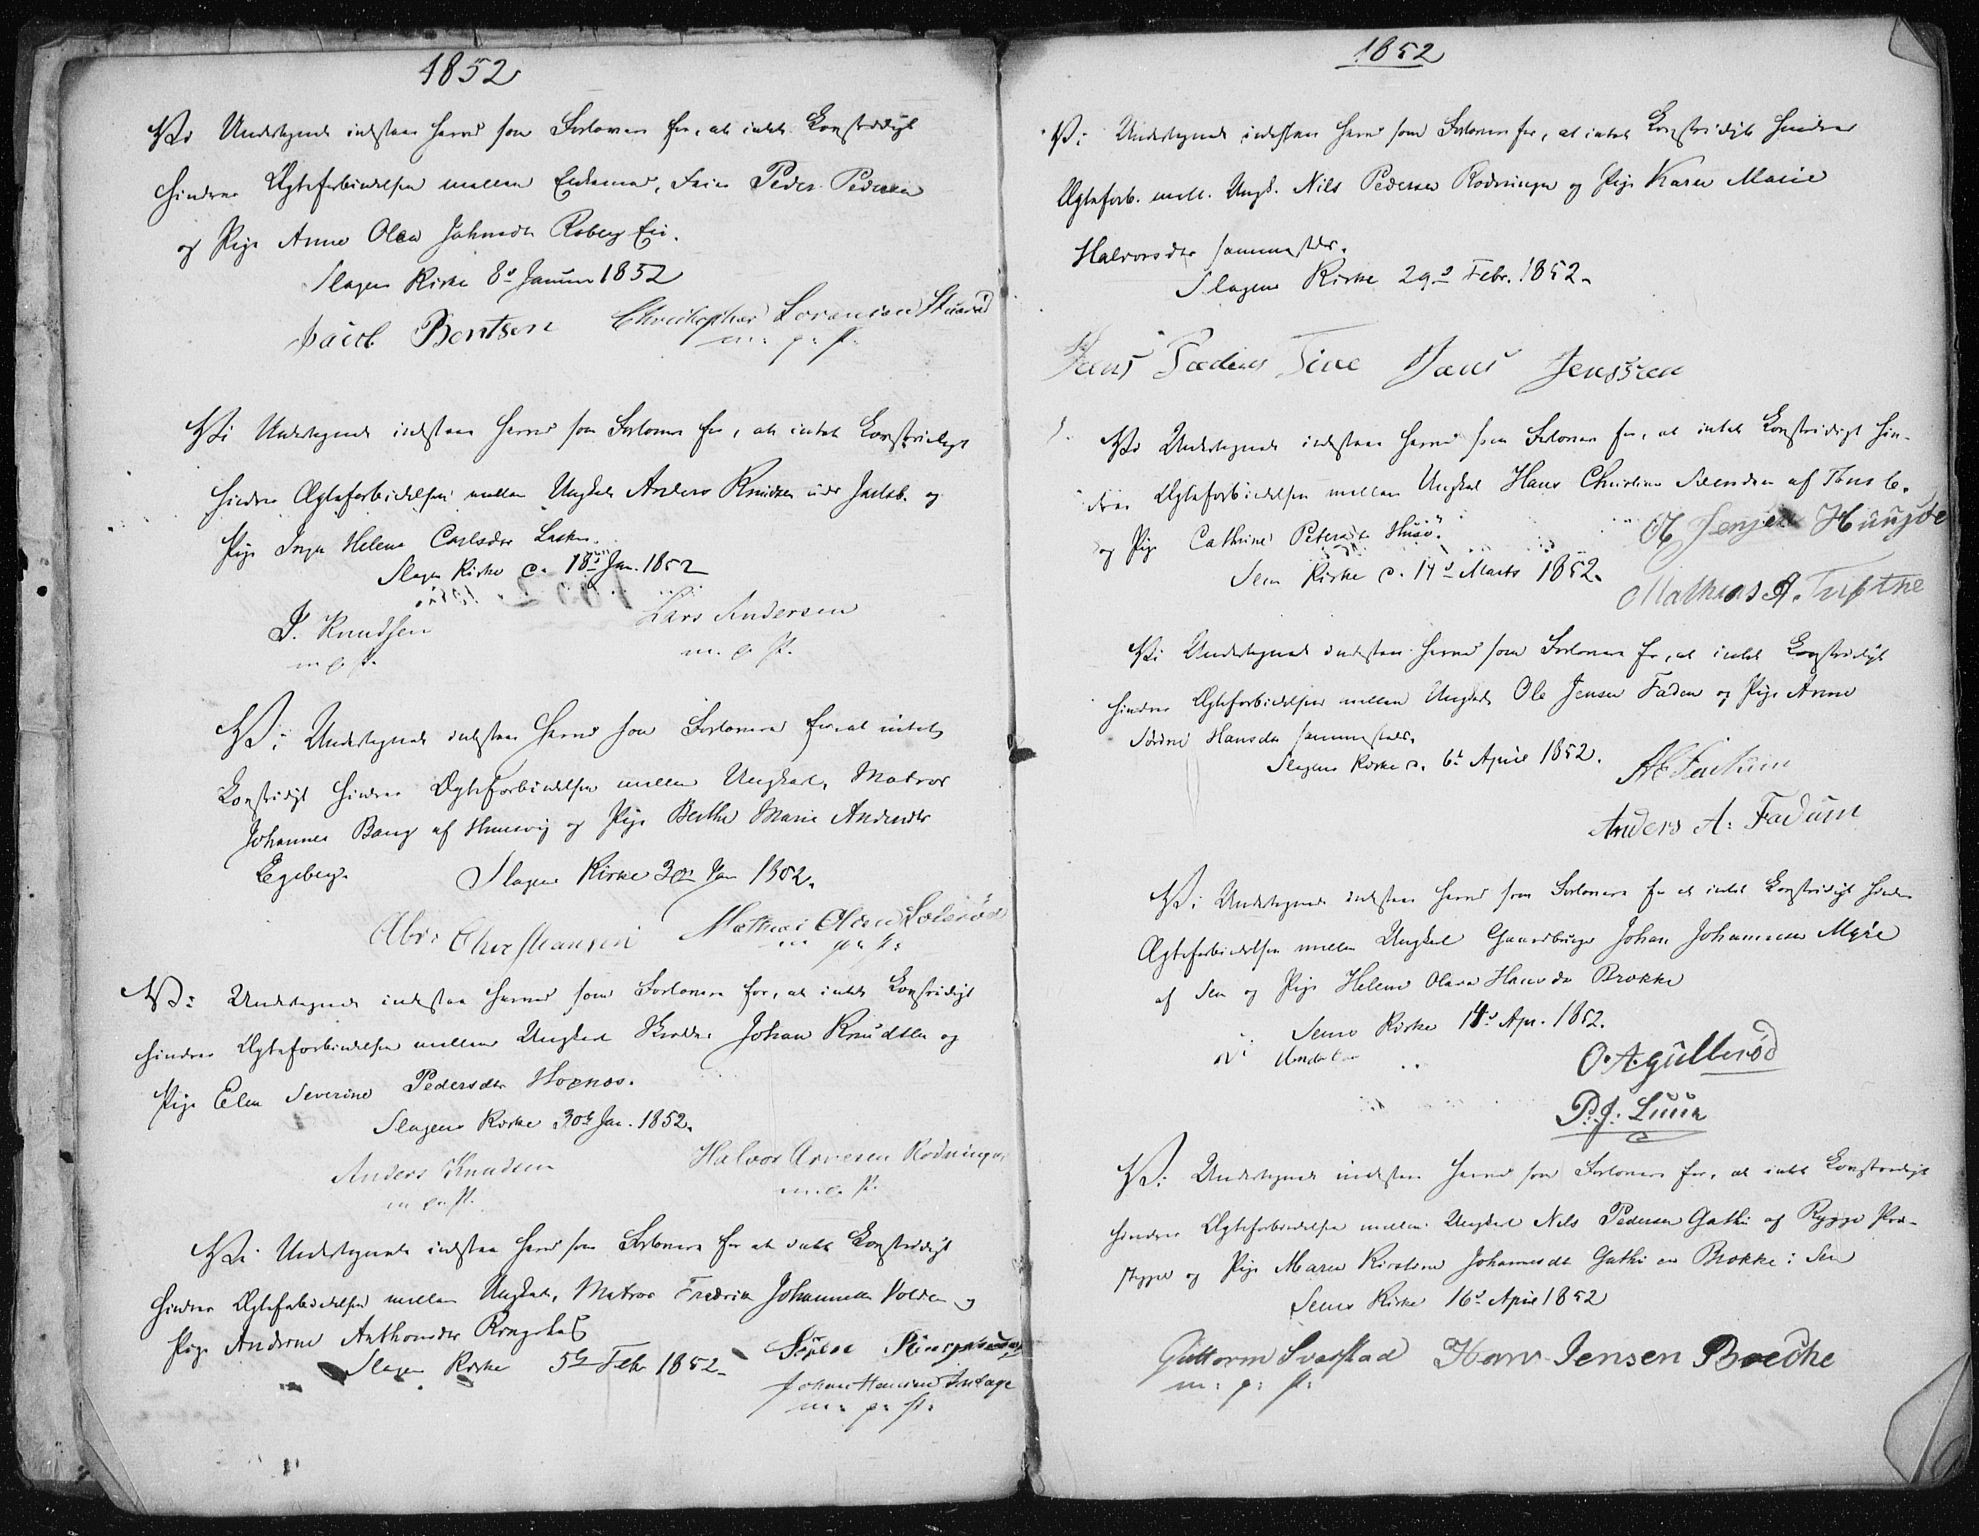 1852
Vi Undertegnede indestaae herved som Forlovere for, at intet Lovstridigt
hindrer Ægteforbindelsen mellem Enkemand, Peder Pedersen
og Pige Anne Olea Jahnsdtr Roberg Eie.
Slagen Kirke 8de Januar 1852
Jacob Bentsen Christopher Sørensen
m. p. P.
Vi Undertegnede indestaae herved som Forlovere for, at intet Lovstridigt
hindrer Ægteforbindelsen mellem Ungkarl Anders Knudsen og
Pige Inger Helene Carlsdtr
Slagen Kirke d. 18de Jan. 1852
J. Knudsen Lars Andersen
m. p. P. m. p. P.
Vi Undertegnede indestaae herved som Forlovere for at intet
Lovstridigt hindrer Ægteforbindelsen mellem Ungkarl, Matros
Johannes Bang af og Pige Berthe Marie Andersdtr
Egeberg. Slagen Kirke 30te Jan 1852.
Abr: Christiansen Mathias Olsen
m p. P.
Vi Undertegnede indestaae herved som Forlovere for, at intet Lovstridigt
hindrer Ægteforbindelsen mellem Ungkarl Johan Knudsen og
Pige Elen Severine Pedersdtr Hoxnæs.
Slagens Kirke 30te Jan. 1852.
Anders Knudsen Halvor Arvesen Rødningen
m. p. P. m. p. P.
Vi Undertegnede indestaae herved som Forlovere for at intet Lovstridigt
hindrer Ægteforbindelsen mellem Ungkarl, Matros Fredrik Johannesen Volden og
Pige Andrine Anthonsdtr Ringshaug
Slagen Kirke 5te Febr 1852.
Johan Hansen
m. p. P.
1852
Vi Undertegnede indestaae herved som Forlovere for, at intet Lovstridigt hindrer
Ægteforb. mell. Ungk. Nils Pedersen Rødningen og Pige Karen Marie
Halvorsdtr sammesteds.
Slagens Kirke 29de Febr. 1852.
Hans Jenssen
Vi Undertegnede indestaae herved som Forlovere for, at intet Lovstridigt hin-
drer Ægteforbindelsen mellem Ungkarl Hans Christian Svendsen af Tønsb.
og Pige Cathrine Petersdtr Husø.
Sem Kirke d. 14de Marts 1852.
Mathias A.
Vi Undertegnede indestaae herved som Forlovere for, at intet Lovstridigt
hindrer Ægteforbindelsen mellem Ungkarl Ole Jensen Fadum og Pige Anne
Sørine Hansdtr sammesteds.
Slagens Kirke d. 6te April 1852.
Anders A: Fadum
Vi Undertegnede indestaae herved som Forlovere for at intet Lovstridigt hindrer
Ægteforbindelsen mellem Ungkarl Gaardbruger Johan Johannesen Myre
af Sem og Pige Helene Olava Hansdtr Brekke
Sems Kirke 14de Apr. 1852.
O. A. Gullerød
P. J. Luur
Vi Undertegnede indestaae herved som Forlovere for, at intet Lovstridigt
hindrer Ægteforbindelsen mellem Ungkarl Nils Pedersen Gathi af Rygge Præ-
stegjeld og Pige Maren Kirstine Johannesdtr Gathi Brekke i Sem
Sems Kirke 16de April 1852
Guttorm Svarstad Hans Jensen Brecke
m: p: P: